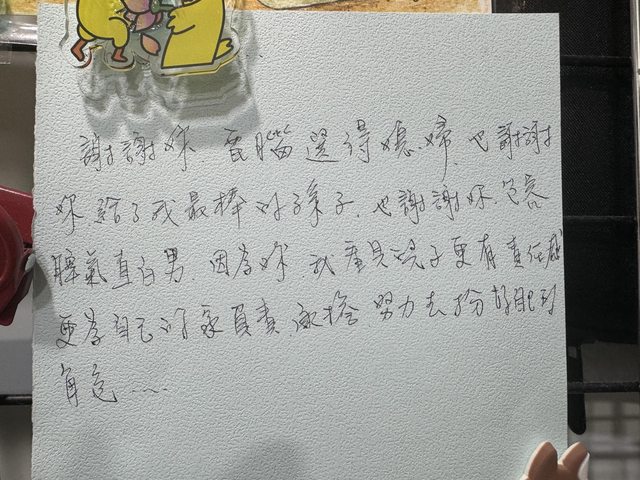 謝謝妳 電腦選得媳婦.也謝謝
妳.給了我最棒的孫子.也謝謝妳.包容
脾氣直白男.因為妳 我看見兒子更有責任感
更為自己的家負責 承擔 努力去扮好自己的
角色……